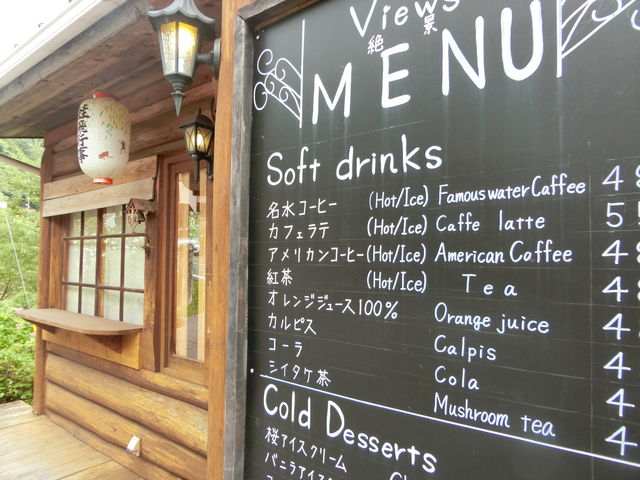 Views
絶景
MENU
Soft drinks
名水コーヒー (Hot/Ice) Famous water Caffee 4
カフェラテ (Hot/Ice) Caffe latte 5
アメリカンコーヒー (Hot/Ice) American Coffee 4
紅茶 (Hot/Ice) Tea 4
オレンジジュース100% Orange juice 4
カルピス Calpis 4
コーラ Cola 4
シイタケ茶 Mushroom tea 4
Cold Desserts
桜アイスクリーム
バニラアイス